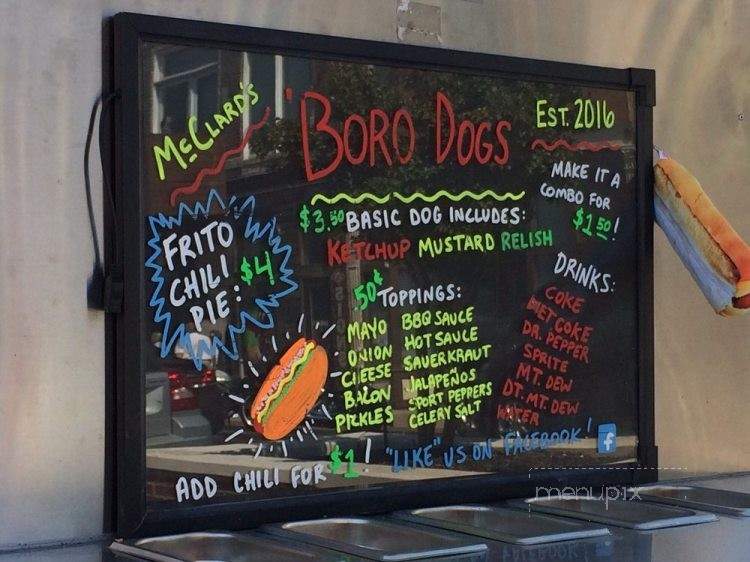 McClard's
'Boro Dogs
Est. 2016
$3.50 Basic Dog Includes:
Ketchup Mustard Relish
Make it a
combo for
$1.50!
Frito
Chili
Pie:
$4
50¢ Toppings:
Mayo
Onion
Cheese
Bacon
Pickles
BBQ Sauce
Hot Sauce
Sauerkraut
Jalapeños
Sport Peppers
Celery Salt
Drinks:
Coke
Diet Coke
Dr. Pepper
Sprite
Mt. Dew
Dt. Mt. Dew
Water
Add Chili for $1!
"Like" us on Facebook!
f
menupix